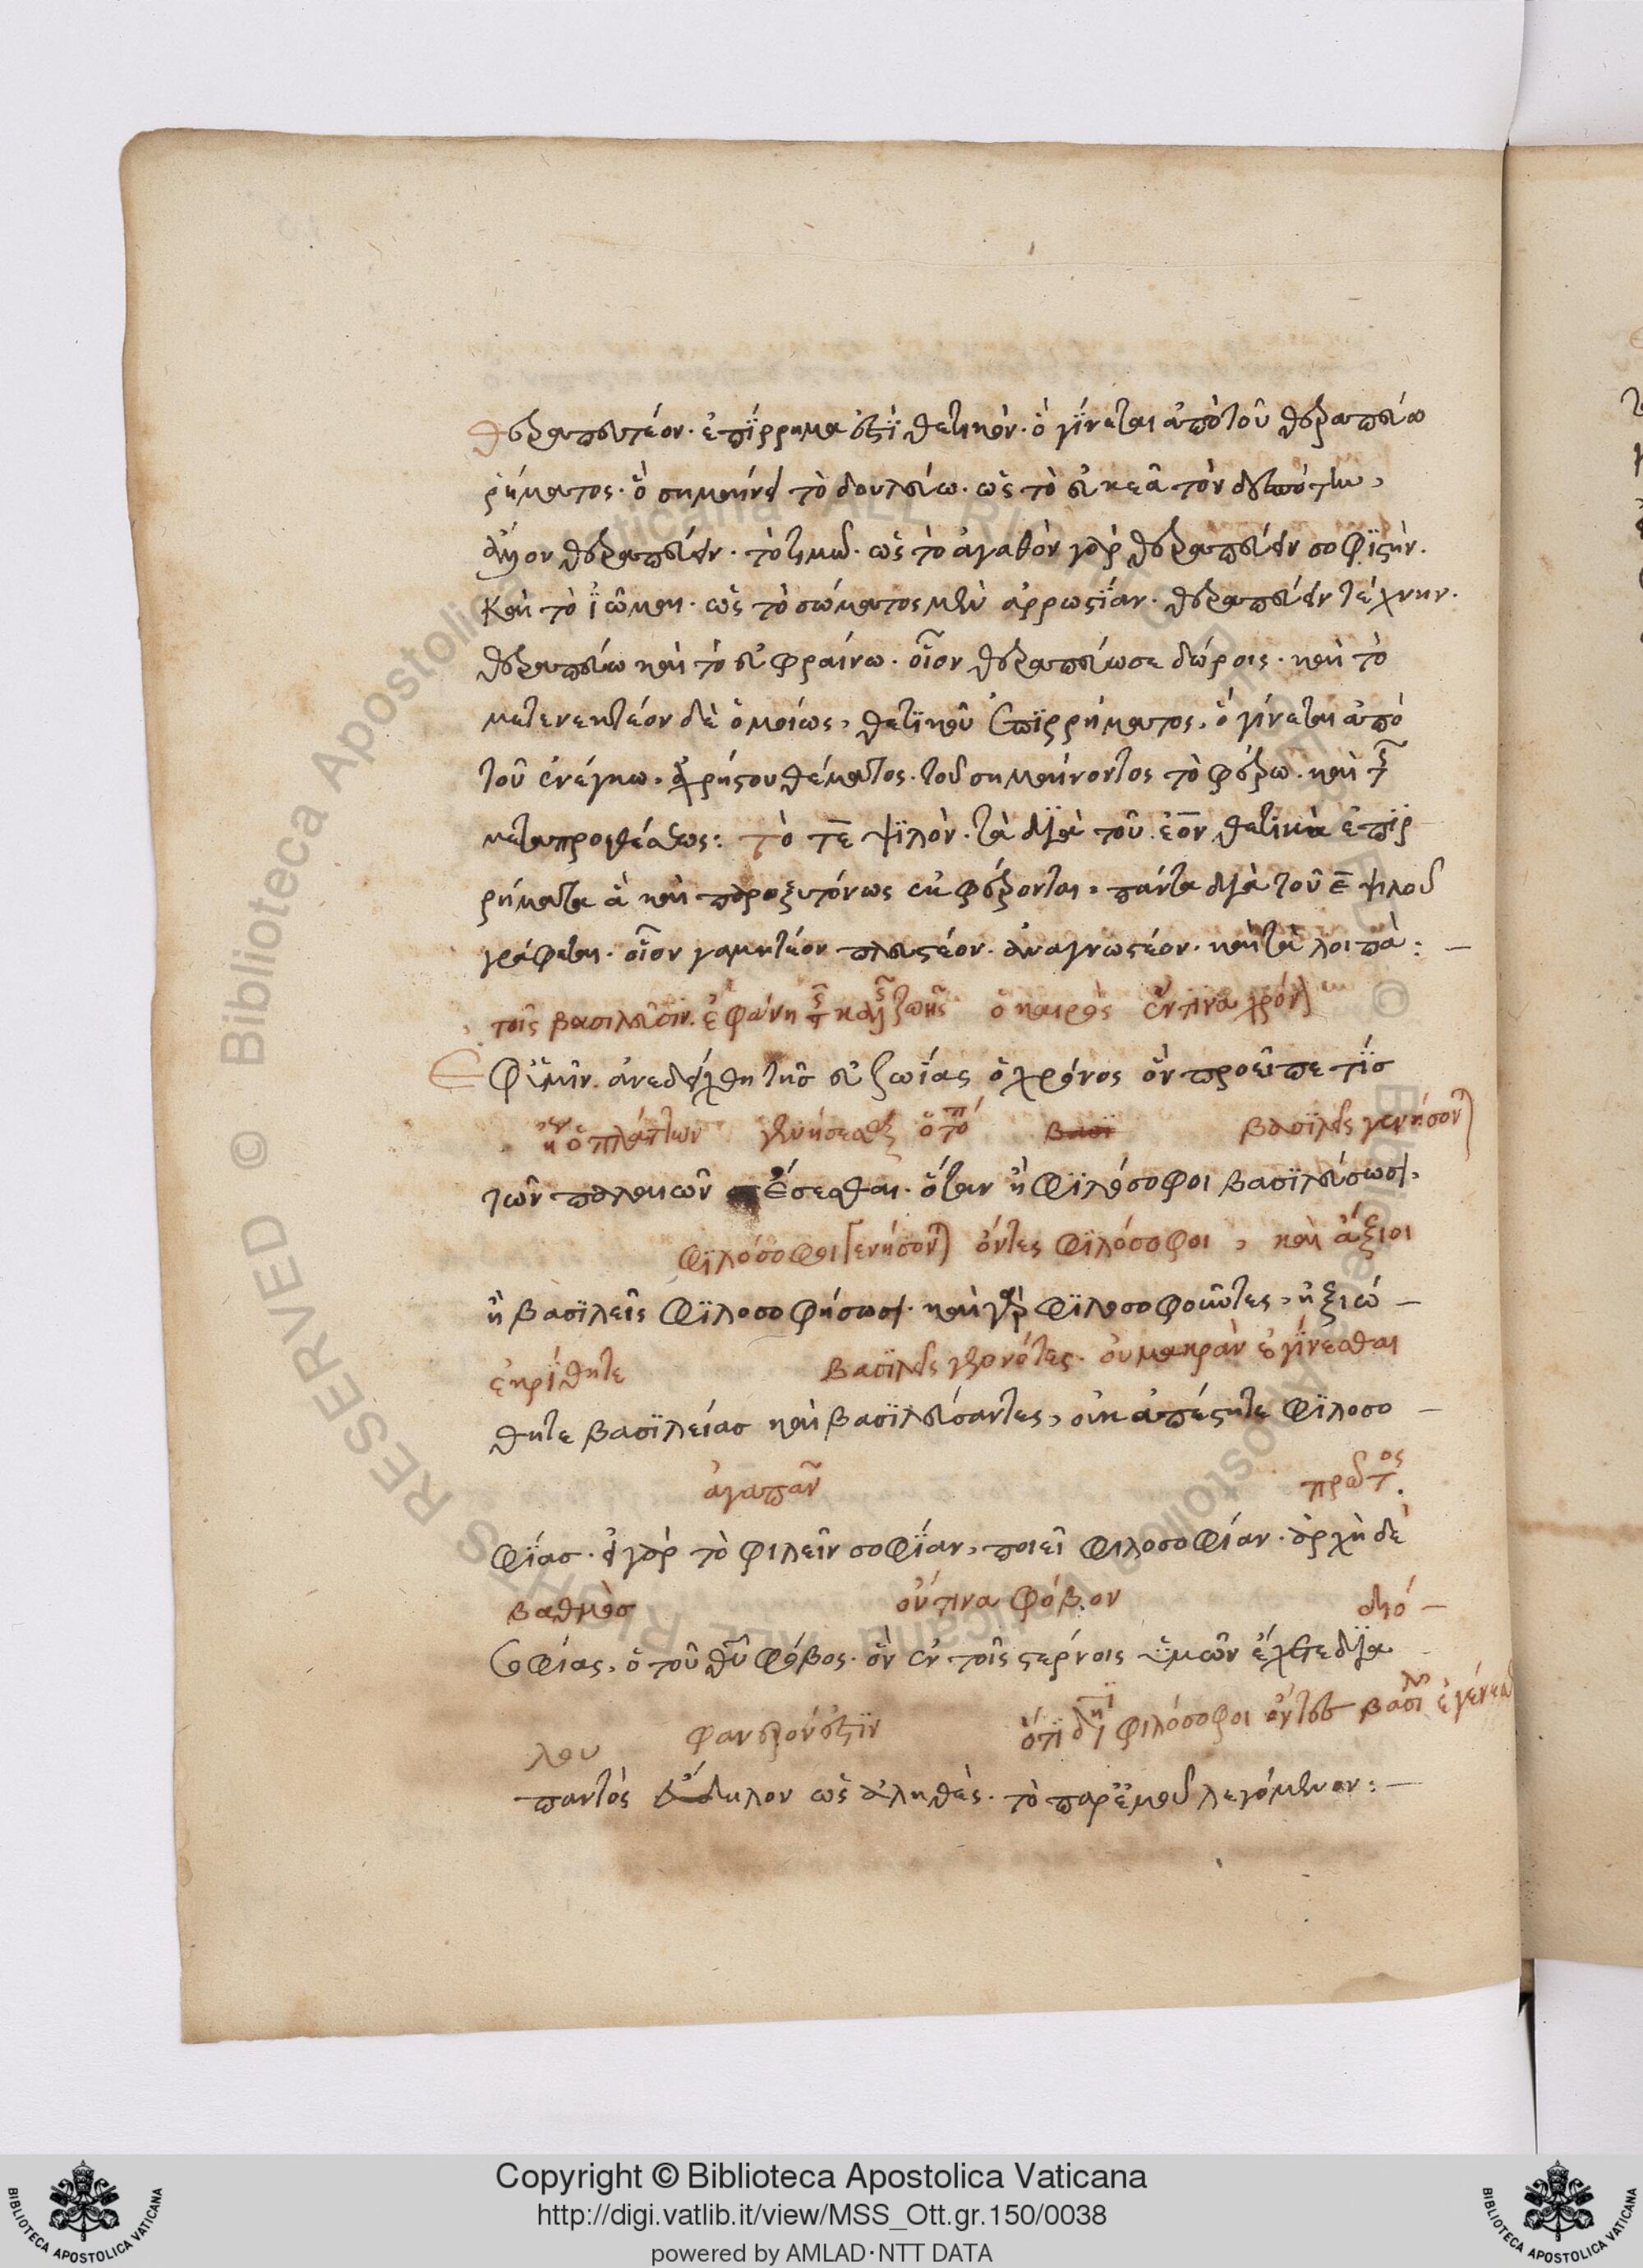 θεραπευτέον. ἐπίρρημα ἐστὶ θετικόν. ὃ γίνεται ἀπὸ τοῦ θεραπεύω
ῥήματος. ὃ σημαίνει τὸ δουλεύω. ὡς τὸ τὸν δεσπότην,
ἄξιον θεραπεύειν. τὸ τιμῶ. ὡς τὸ ἀγαθὸν γὰρ θεραπεύειν σοφϊστὴν.
καὶ τὸ ϊῶμαι. ὡς τὸ σώματος μὲν ἀρρωστΐαν. θεραπεύειν τέχνην.
θεραπεύω καὶ τὸ εὐφραίνω. οἷον θεραπεύω σε δώροις. καὶ τὸ
μετενεκτέον δὲ ὁμοίως, θετϊκοῦ ἐπϊρρήματος, ὃ γίνεται ἀπὸ
τοῦ ἐνέγκω. ἀχρήστου θέματος. τοῦ σημαίνοντος τὸ φέρω. καὶ τῆς
μετα προθέσεως: τὸ τε ψϊλὸν. τὰ δϊὰ τοῦ εον θετικὰ ἐπϊρ
ρήματα ἃ καὶ παροξυτόνως ἐκφέρονται, πάντα διὰ τοῦ ε ψιλοῦ
γράφεται. οἷον γαμητέον πλευστέον. ἀναγνωστέον. καὶ τὰ λοιπὰ: –
τοῖς βασιλεῦσιν. ἐφάνη τῆς καλῆς ζωῆς ὁ καιρὸς ὅντινα χρόνον
Ἐφ ὑμῖν ἀνεδείχθη τῆς εὐζωΐας ὁ χρόνος ὃν προεῖπε τῒς
ἤγουν ὁ πλάτων γενήσεσθαι βασϊ βασϊλεῖς γενήσονται
τῶν παλαιῶν ἔσεσθαι. ὅταν ἢ φϊλόσοφοι βασϊλεύσωσι,
φϊλόσοφοι γενήσονται ὄντες φϊλόσοφοι, καὶ ἄξιοι
ἢ βασϊλεῖς φϊλοσοφήσωσι. καὶ γὰρ φϊλοσοφοῦντες, ἠξιώ –
ἐκρΐθητε βασϊλεῖς γεγονότες. οὐ μακρὰν ἐγΐνεσθαι
θητε βασϊλείας καὶ βασϊλεύσαντες, οὐκ ἀπέστητε φϊλοσο –
ἀγαπᾶν πρῶτος.
φΐας. εἰ γὰρ τὸ φιλεῖν σοφΐαν, ποιεῖ φιλοσοφίαν. ἀρχὴ δὲ
βαθμὸς οὕτινα φόβον διό –
σοφίας, ὁ τοῦ θῦ φόβος. ὃν ἐν τοῖς στέρνοις ὑμῶν ἔχετε δϊα
λου φανερόν ἐστϊν ὅτϊ φιλόσοφοι ὄντες
παντὸς εὔδηλον ὡς ἀληθὲς. τὸ παρ ἐμοῦ λεγόμενον: –
Copyright © Biblioteca Apostolica Vaticana
http://digi.vatlib.it/view/MSS_Ott.gr.150/0038
powered by AMLAD·NTT DATA
BIBLIOTECA APOSTOLICA VATICANA
BIBLIOTECA APOSTOLICA VATICANA